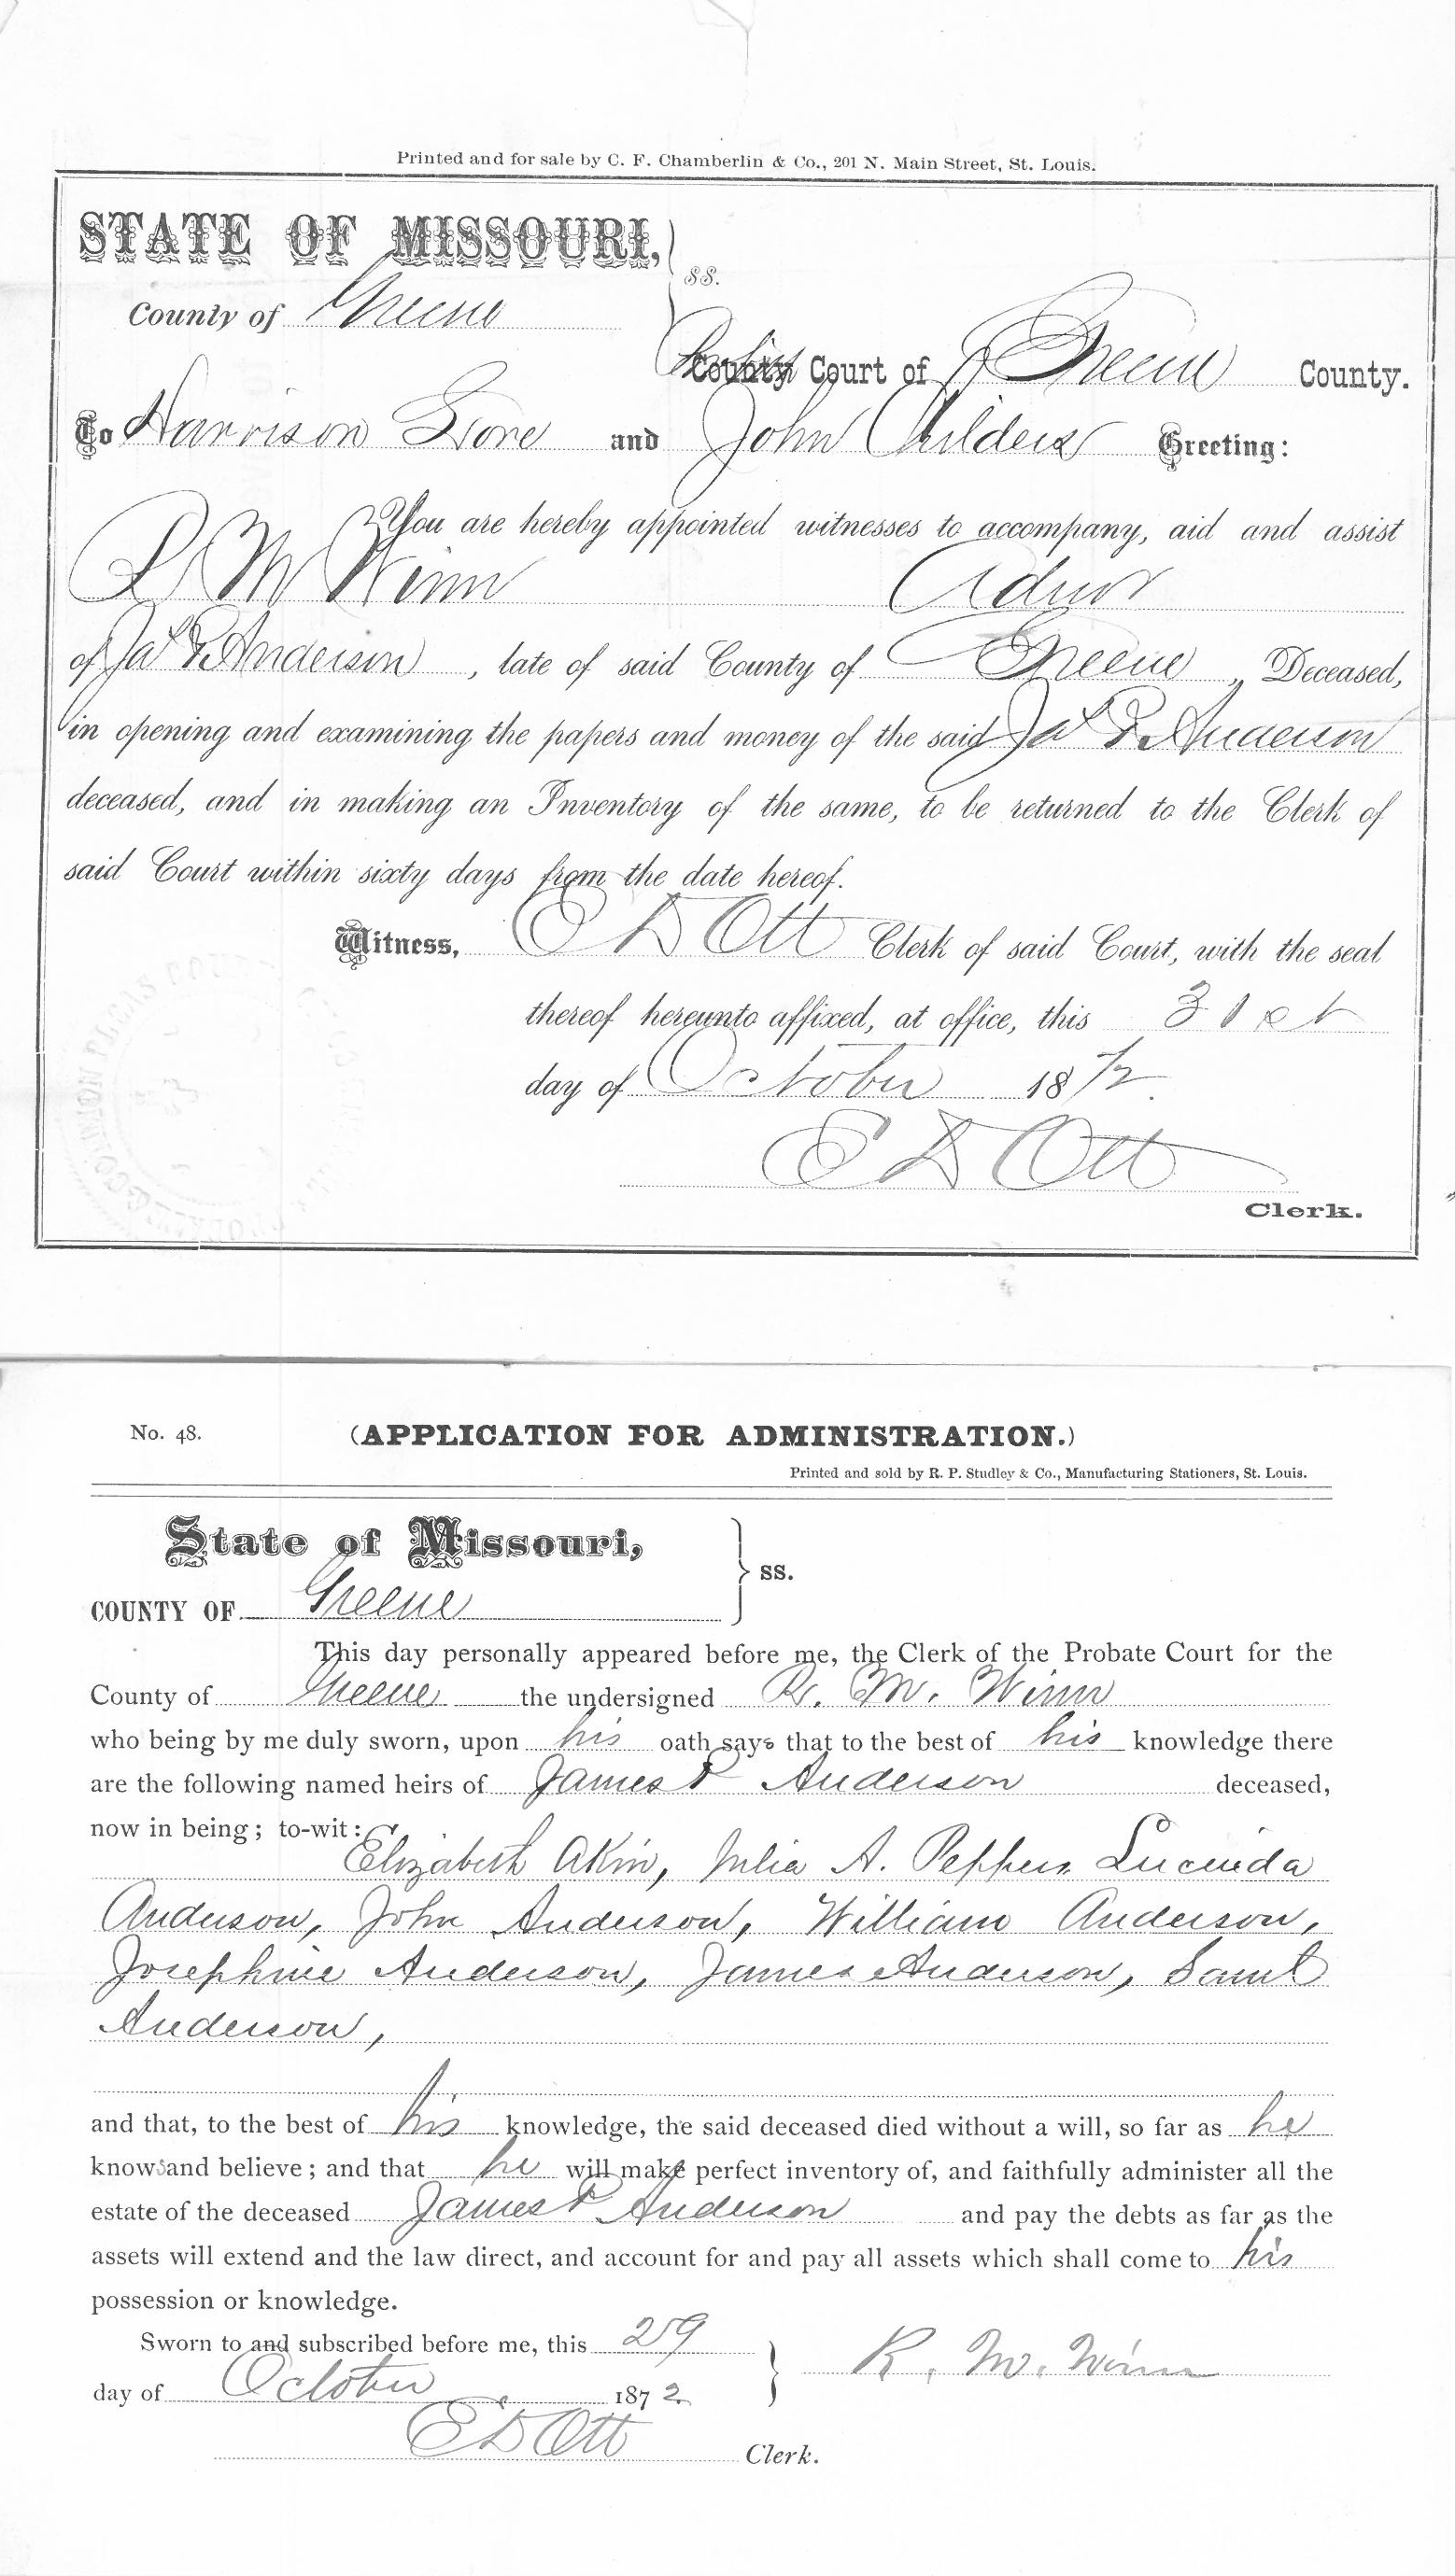 Printed and for sale by C. F. Chamberlin & Co., 201 N. Main Street, St. Louis.
STATE OF MISSOURI,
ss.
County of Greene
Probate County Court of Greene County.
To Harrison Gore and John Childers Greeting:
You are hereby appointed witnesses to accompany, aid and assist
R M Winn Admr
of Jas P. Anderson, late of said County of Greene, Deceased,
in opening and examining the papers and money of the said Jas P. Anderson
deceased, and in making an Inventory of the same, to be returned to the Clerk of
said Court within sixty days from the date hereof.
Witness, E D Ott Clerk of said Court, with the seal
thereof hereunto affixed, at office, this 31st
day of October 1872.
E D Ott
Clerk.
COMMON PLEAS
No. 48. (APPLICATION FOR ADMINISTRATION.)
Printed and sold by R. P. Studley & Co., Manufacturing Stationers, St. Louis.
State of Missouri,
ss.
COUNTY OF Greene
This day personally appeared before me, the Clerk of the Probate Court for the
County of Greene the undersigned R. M. Winn
who being by me duly sworn, upon his oath says that to the best of his knowledge there
are the following named heirs of James P Anderson deceased,
now in being; to-wit:
Elizabeth Akin, Julia A. Peppers Lucinda
Anderson, John Anderson, William Anderson,
Josephine Anderson, James Anderson, Saml
Anderson,
and that, to the best of his knowledge, the said deceased died without a will, so far as he
knows and believe; and that he will make perfect inventory of, and faithfully administer all the
estate of the deceased James P Anderson and pay the debts as far as the
assets will extend and the law direct, and account for and pay all assets which shall come to his
possession or knowledge.
Sworn to and subscribed before me, this 29
day of October 1872
R. M. Winn
E D Ott
Clerk.